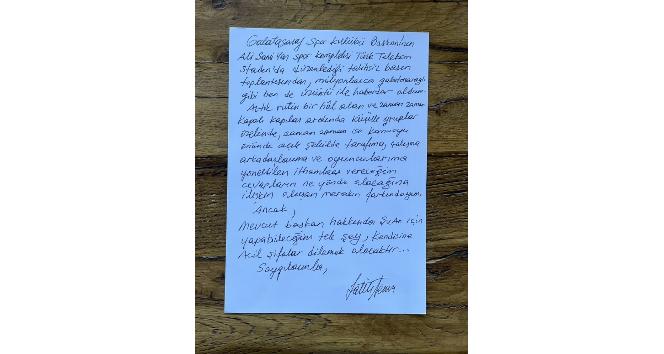 Galatasaray Spor Kulübü Başkanı'nın
Ali Sami Yen Spor Kompleksi Türk Telekom
Stadı'nda düzenlediği talihsiz basın
toplantısından, milyonlarca galatasaraylı
gibi ben de üzüntü ile haberdar oldum.
Artık rutin bir hâl alan ve zaman zaman
kapalı kapılar ardında küçük gruplar
özelinde, zaman zaman ise kamuoyu
önünde açık şekilde tarafıma, çalışma
arkadaşlarıma ve oyuncularıma
yöneltilen ithamlara vereceğim
cevapların ne yönde olacağına
ilişkin oluşan merakın farkındayım.
Ancak,
Mevcut başkan hakkında şu an için
yapabileceğim tek şey, kendisine
Acil şifalar dilemek olacaktır...
Saygılarımla,
Fatih Terim